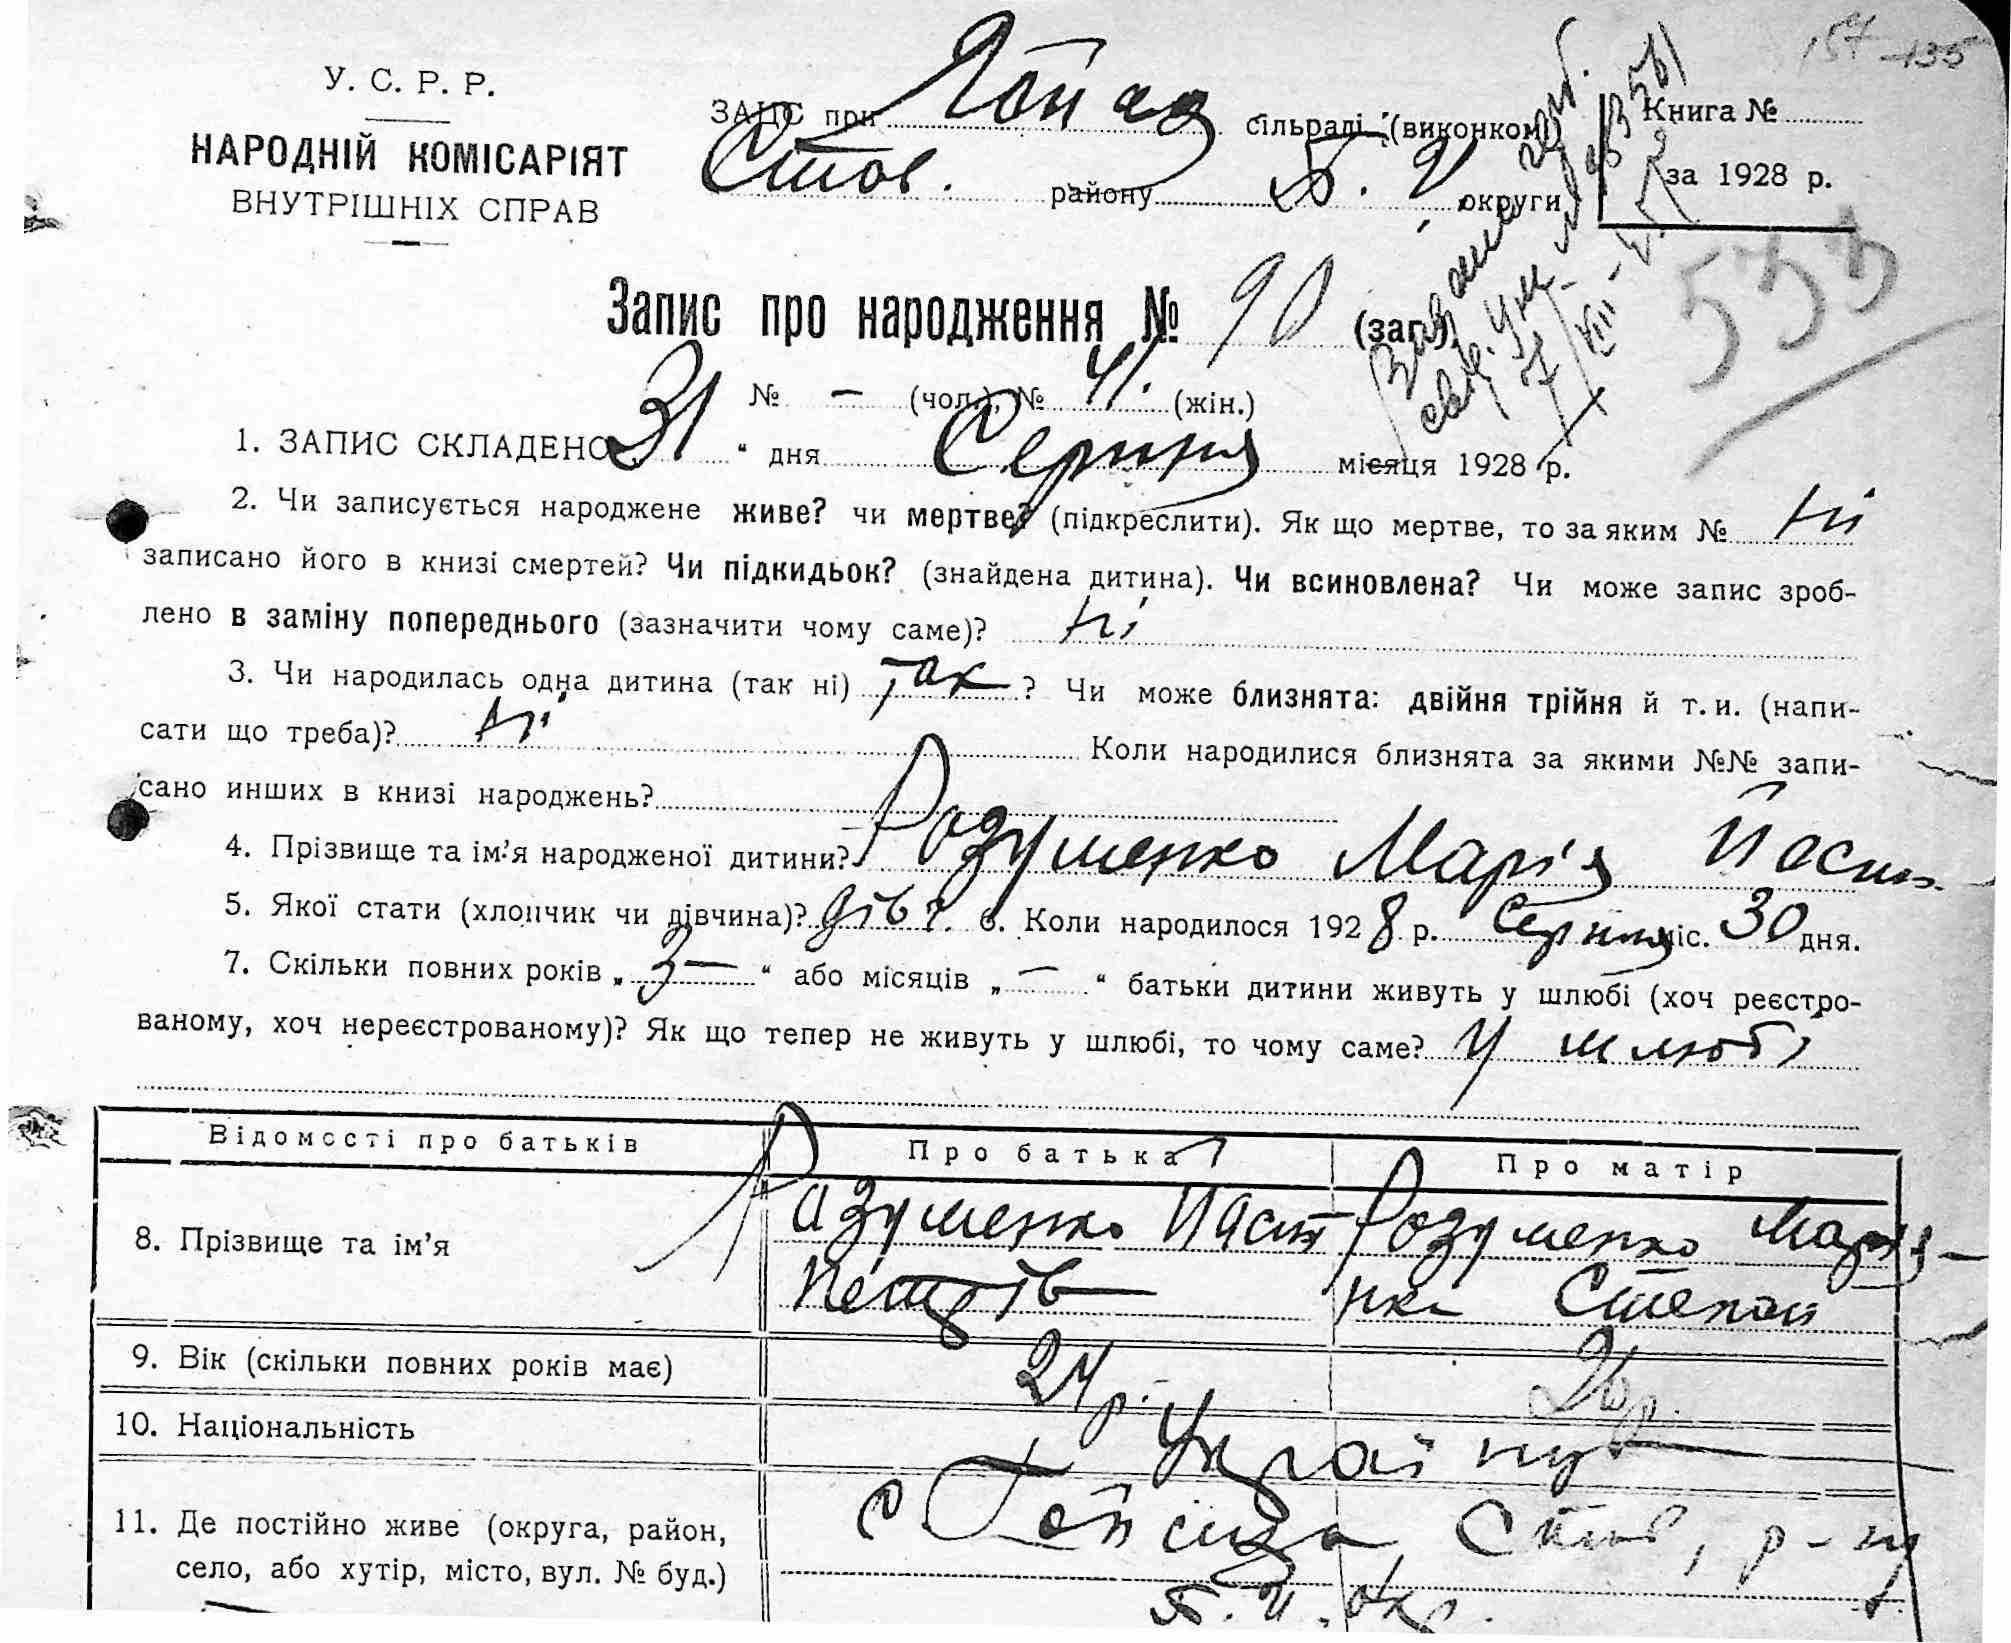 157 135
У. С. Р. Р.
НАРОДНІЙ КОМІСАРІЯТ
ВНУТРІШНІХ СПРАВ
ЗАЦС при сільраді (виконком)
Став. району Б. Ц. округи
Книга №
за 1928 р.
533
Запис про народження № 90 (заг.)
№ — (чол.), № 41. (жін.)
1. ЗАПИС СКЛАДЕНО 31 “ дня Серпня місяця 1928 р.
2. Чи записується народжене живе? чи мертве? (підкреслити). Як що мертве, то за яким № ні
записано його в книзі смертей? Чи підкидьок? (знайдена дитина). Чи всиновлена? Чи може запис зроб-
лено в заміну попереднього (зазначити чому саме)? ні
3. Чи народилась одна дитина (так ні) так ? Чи може близнята: двійня трійня й т. и. (напи-
сати що треба)? ні Коли народилися близнята за якими №№ запи-
сано инших в книзі народжень?
4. Прізвище та ім'я народженої дитини? Розуменко Марія Наст.
5. Якої стати (хлопчик чи дівчина)? дівч. 6. Коли народилося 1928 р. Серпня міс. 30 дня.
7. Скільки повних років „ 3 — “ або місяців „ — “ батьки дитини живуть у шлюбі (хоч реєстро-
ваному, хоч нереєстрованому)? Як що тепер не живуть у шлюбі, то чому саме? У шлюбі
Відомості про батьків Про батька Про матір
8. Прізвище та ім'я Разуменко Наст Розуменко Марія
Петрів Степан
9. Вік (скільки повних років має) 24 р. 26 р.
10. Національність Україну
11. Де постійно живе (округа, район, с. Став, р-ну
село, або хутір, місто, вул. № буд.) Б. Ц. окр.